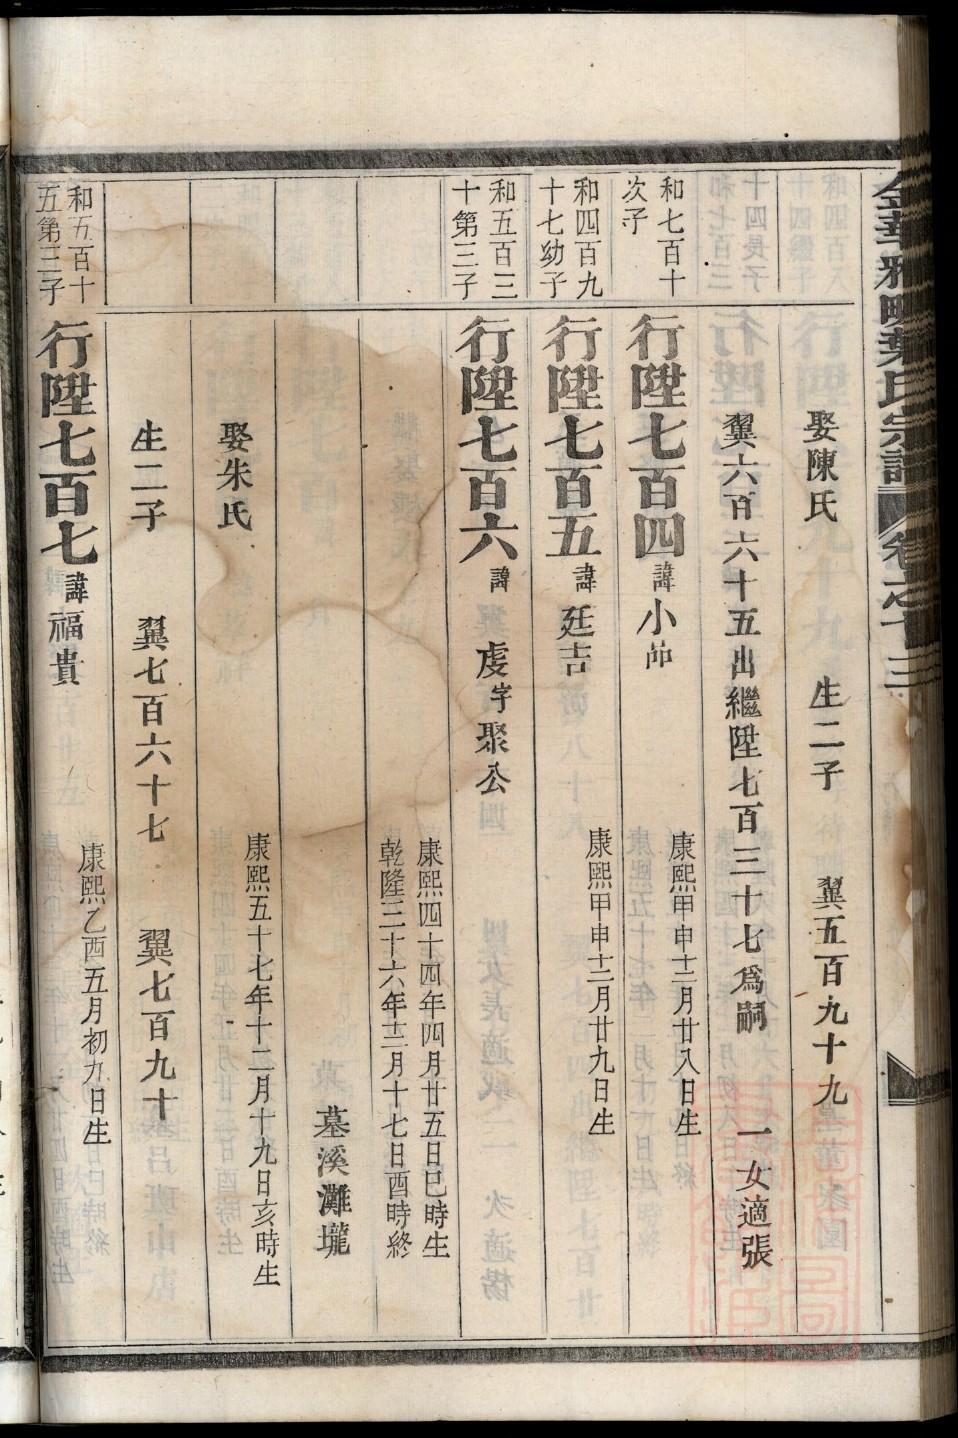 金華雅畈葉氏宗譜 卷之十三
娶陳氏 生二子 翼五百九十九
翼六百六十五出繼陞七百三十七爲嗣 一女適張
和七百十
次子
行陞七百四 諱小茆
康熙甲申十二月廿八日生
和四百九
十七幼子
行陞七百五 諱廷吉
康熙甲申十二月廿九日生
和五百三
十第三子
行陞七百六 諱虔字聚公
康熙四十四年四月廿五日巳時生
乾隆三十六年三月十七日酉時終
墓溪灘壠
娶朱氏
康熙五十七年十二月十九日亥時生
生二子 翼七百六十七 翼七百九十
和五百十
五第三子
行陞七百七 諱福貴
康熙乙酉五月初九日生